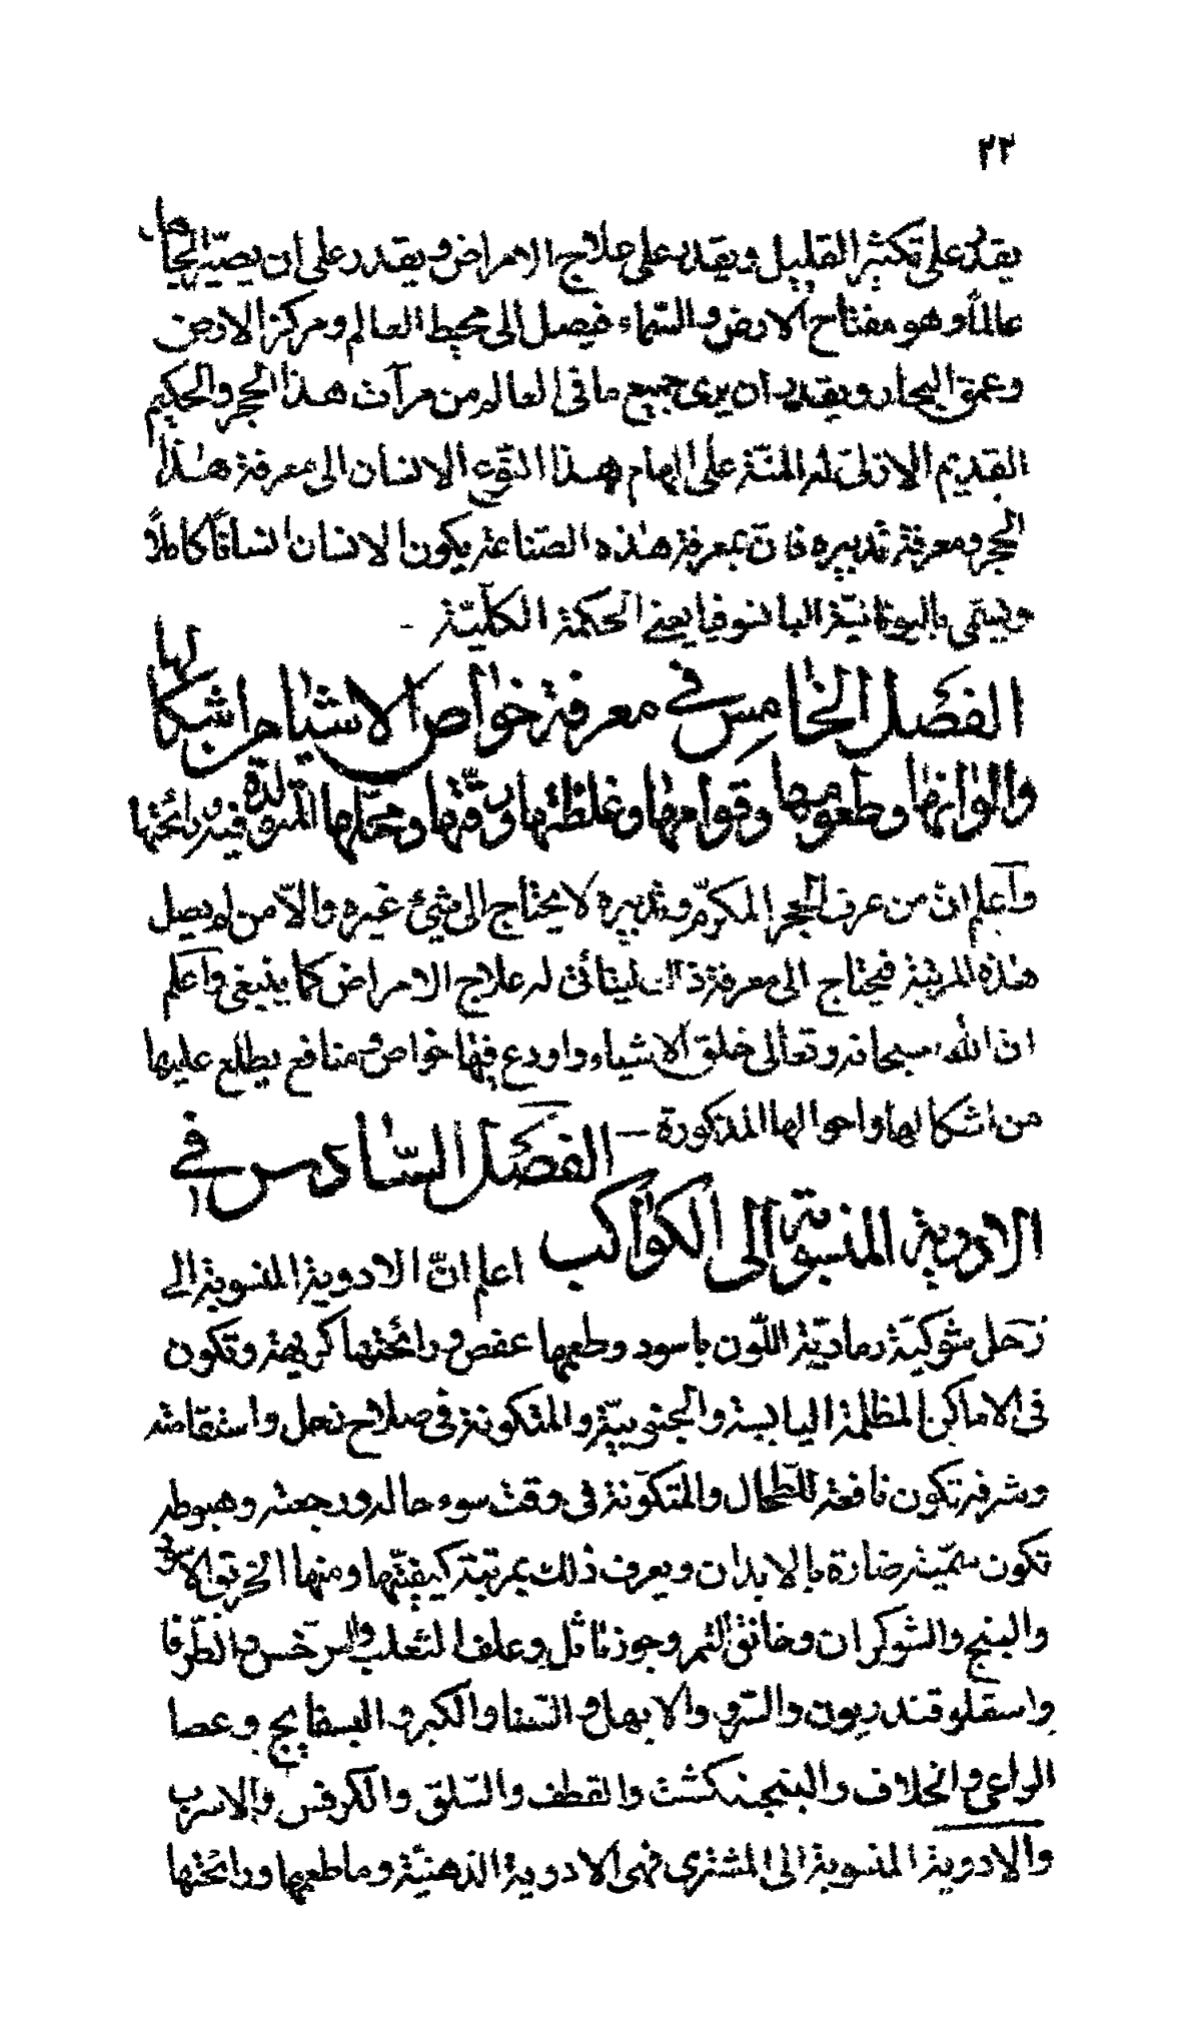 ٢٢
يقدر على تكثير القليل ويقدر على علاج الامراض ويقدر على ان يصيّر الجاهل
عالمًا وهو مفتاح الارض والسّماء فيصل الى محيط العالم ومركز الارض
وعمق البحار ويقدر ان يرى جميع ما فى العالم من مرآت هذا الحجر والحكيم
القديم الازلىّ له المنّة على الهام هذا النّوع الانسان الى معرفة هٰذا
الحجر ومعرفة تدبيره فانّ بمعرفة هٰذه الصّناعة يكون الانسان انسانًا كاملًا
ويسمّى باليونانيّة البانسوفيا يعنے الحكمة الكلّيّة -
الفصل الخامس في معرفة خواص الاشياء من اشكالها
والوانها وطعومها وقوامها وغلظتها ورقّتها ومحلّها المتولّدة فيه ورائحتها
وآعلم انّ من عرف الحجر المكرّم وتدبيره لا يحتاج الى شئ غيره والّا من لم يصل
هٰذه المرتبة فيحتاج الى معرفة ذالك ليتأتى له علاج الامراض كما ينبغى وآعلم
ان الله سبحانه وتعالى خلق الاشياء واودع فيها خواص ومنافع يطلع عليها
من اشكالها واحوالها المذكورة — الفصل السّادس في
الادوية المنسوبة الى الكواكب اعلم انّ الادوية المنسوبة الى
زحل شوكيّة رماديّة اللّون باسود وطعمها عفص ورائحتها كريهة وتكون
فى الاماكن المظلمة اليابسة والجنوبيّة والمتكونة فى صلاح زحل واستقامته
وشرفه تكون نافعة للطّحال والمتكوّنة فى وقت سوء حاله ورجعته وهبوطه
تكون سمّية ضارّة بالابدان ويعرف ذلك بمرتبة كيفيّتها ومنها الخربق الاسود
والبنج والشوكران وخانق النّمر وجوز ماثل وعلف الثعلب والسّرخس والطّرفا
واسقلوقندريون والسّرو والابهل والسّنا والكبر والبسفايج وعصا
الراعى والخلاف والبنجنكشت والقطف والسّلق والكرفس والاسرب
والادوية المنسوبة الى المشترى فهى الادوية الذهنيّة وما طعمها ورائحتها